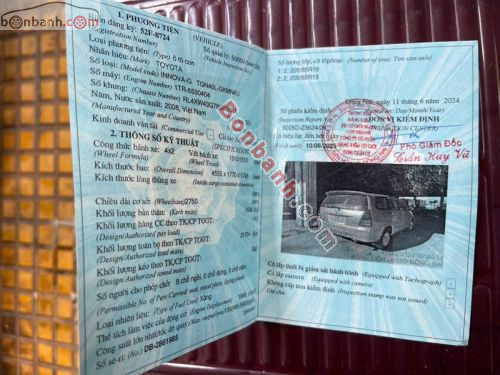 bonbanh.com
1. PHƯƠNG TIỆN (VEHICLE)
đăng ký: 52F-8724 Số quản lý:
(Registration Number) (Vehicle Inspection No.)
Loại phương tiện: (Type) ô tô con
Nhãn hiệu: (Mark) TOYOTA
Số loại: (Model code) INNOVA-G TGN40L-GKMNKU
Số máy: (Engine Number) 1TR-6530404
Số khung: (Chassis Number)
Năm, Nước sản xuất: 2008, Việt Nam
(Manufactured Year and Country)
Kinh doanh vận tải (Commercial Use)
2. THÔNG SỐ KỸ THUẬT
Công thức bánh xe: 4x2 Vết bánh xe: 1510/1510
(Wheel Formula) (Wheel Tread)
Kích thước bao: (Overall Dimension) 4555 x 1770 x 1745
Kích thước lòng thùng xe
(Inside cargo container dimension)
Chiều dài cơ sở: (Wheelbase) 2750
Khối lượng bản thân: (Kerb mass)
Khối lượng hàng CC theo TK/CP TGGT:
(Design/Authorized pay load)
Khối lượng toàn bộ theo TK/CP TGGT: 2170
(Design/Authorized total mass)
Khối lượng kéo theo TK/CP TGGT:
(Design/Authorized towed mass)
Số người cho phép chở: 8 chỗ ngồi, 0 chỗ đứng, 0 chỗ nằm
(Permissible No. of Pers Carried: seat, stood place, laying place)
Loại nhiên liệu: (Type of Fuel Used) Xăng
Thể tích làm việc của động cơ: (Engine Displacement) 1998
Công suất lớn nhất/tốc độ quay:
Số sê-ri: (No.) DB-2861985
Số lượng lốp, cỡ lốp/trục (Number of tires: Tire size/axle)
1: 2; 205/65R15
2: 2; 205/65R15
Số phiếu kiểm định ngày 11 tháng 6 năm 2024
(Inspection Report No) (Issued on: Day/Month/Year)
ĐƠN VỊ KIỂM ĐỊNH
(INSPECTION CENTER)
Có hiệu lực đến hết ngày
(Valid until) 10/06/2025
Phó Giám Đốc
Trần Huy Vũ
Bonbanh.com
Có lắp thiết bị giám sát hành trình (Equipped with Tachograph)
Có lắp camera (Equipped with camera)
Không cấp tem kiểm định (Inspection stamp was not issued)
Ghi chú: